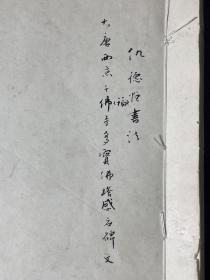 仇德書法
大唐西京千佛福寺多寶佛塔感应碑文